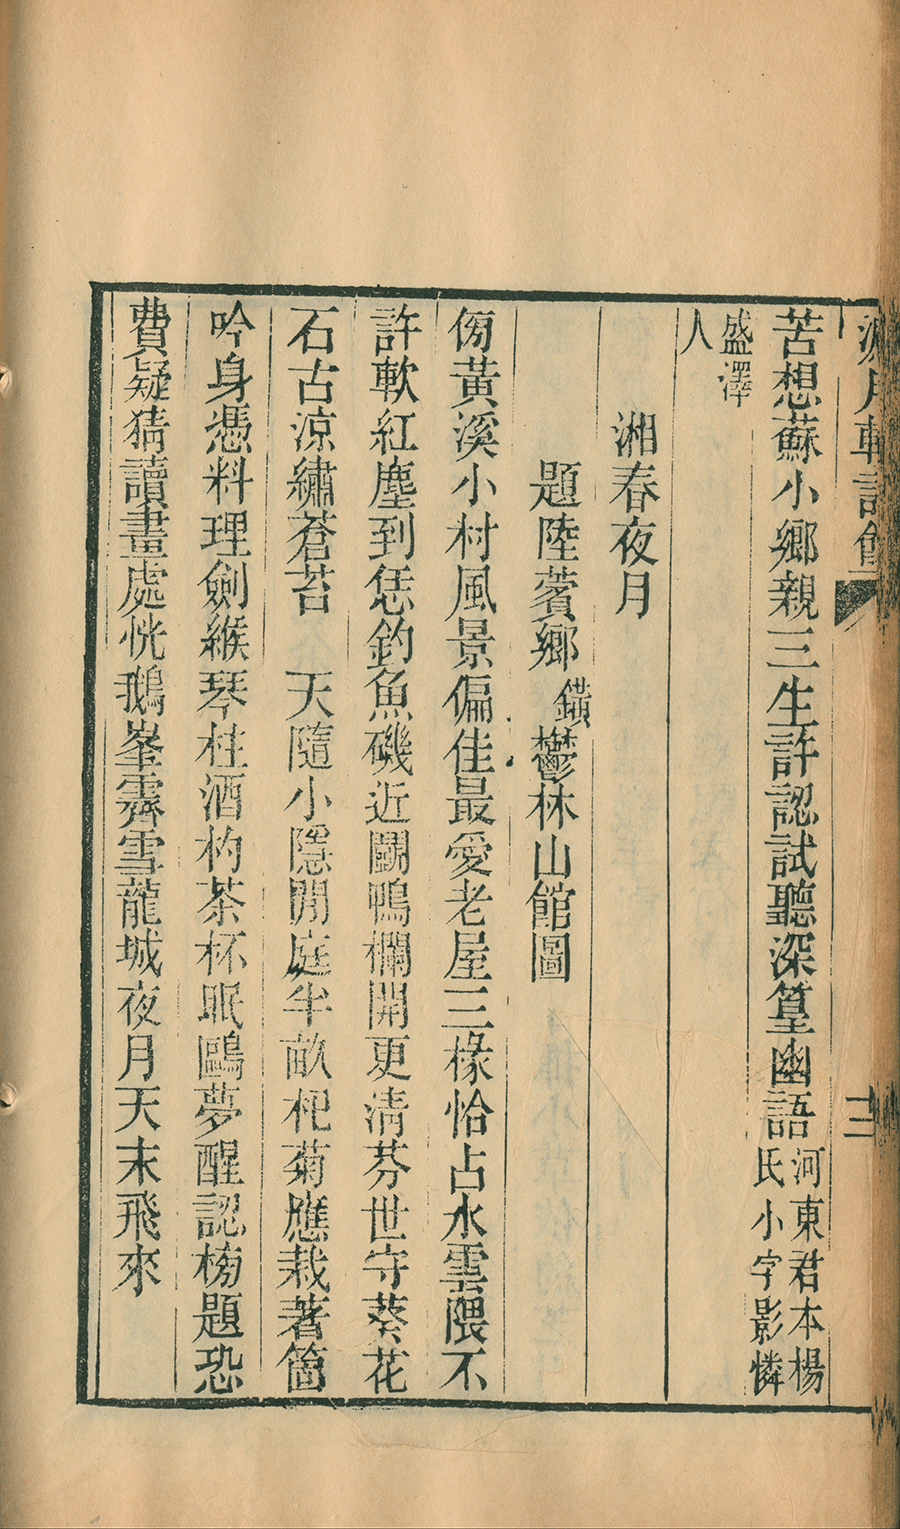 月軒詩餘
三
苦想蘇小鄉親三生許認試聽深篁幽語河東君本楊氏小字影憐
盛澤人
湘春夜月
題陸薲鄉鐄鬱林山館圖
傍黃溪小村風景偏佳最愛老屋三椽恰占水雲隈不
許軟紅塵到恁釣魚磯近鬭鴨欄開更清芬世守葵花
石古涼繡蒼苔　天隨小隱閒庭半畝杞菊應栽著箇
吟身憑料理劍緱琴柱酒杓茶杯眠鷗夢醒認榜題恐
費疑猜讀畫處恍鵝峯霽雪龍城夜月天末飛來